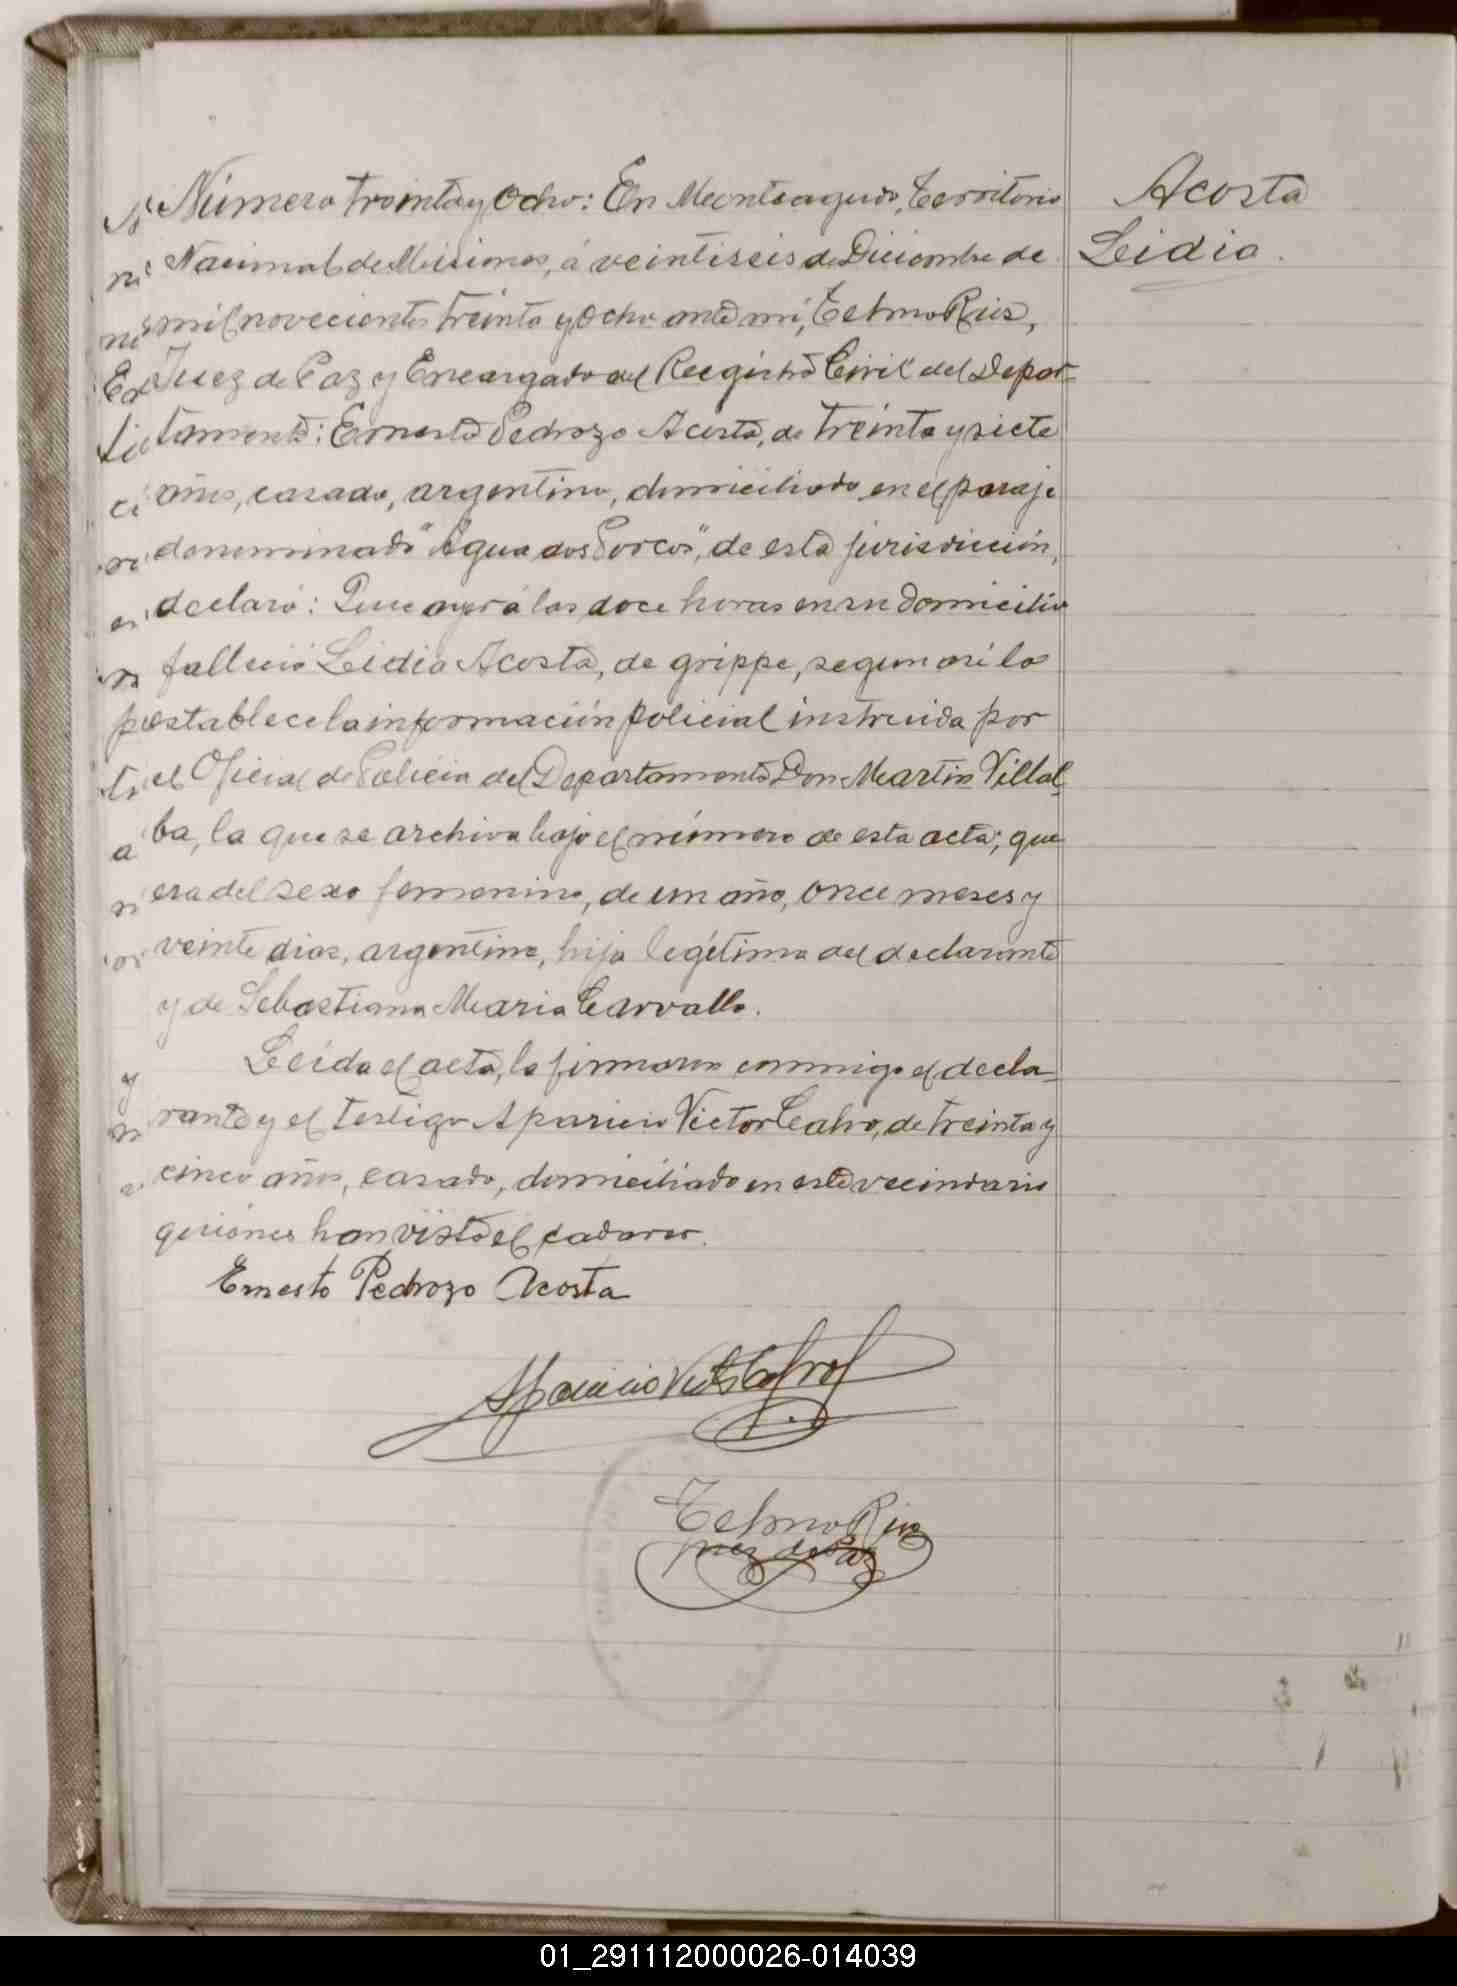 Número treinta y Ocho: En Monteagudo, Territorio
Nacional de Misiones, á veintiseis de Diciembre de
mil novecientos treinta y Ocho ante mí, Telmo Rios,
Juez de Paz y Encargado del Registro Civil del Depar-
tamento: Ernesto Pedrozo Acosta, de treinta y siete
años, casado, argentino, domiciliado en el paraje
denominado "Agua dos Porcos", de esta jurisdicción,
declaró: Que ayer á las doce horas en su domicilio
falleció Leidia Acosta, de grippe, segun así lo
establece la información policial instruida por
el Oficial de Policia del Departamento Don Martin Villal-
ba, la que se archiva bajo el número de esta acta; que
era del sexo femenino, de un año, once meses y
veinte dias, argentina, hija legítima del declarante
y de Sebastiana Maria Carvallo.
Leida el acta, la firmaron conmigo el decla-
rante y el testigo Aparicio Victor Cafro, de treinta y
cinco años, casado, domiciliado en este vecindario
quiénes han visto el cadaver.
Ernesto Pedrozo Acosta
Aparicio Victor Cafro
Telmo Rios
Juez de Paz
Acosta
Leidia.
01_291112000026-014039